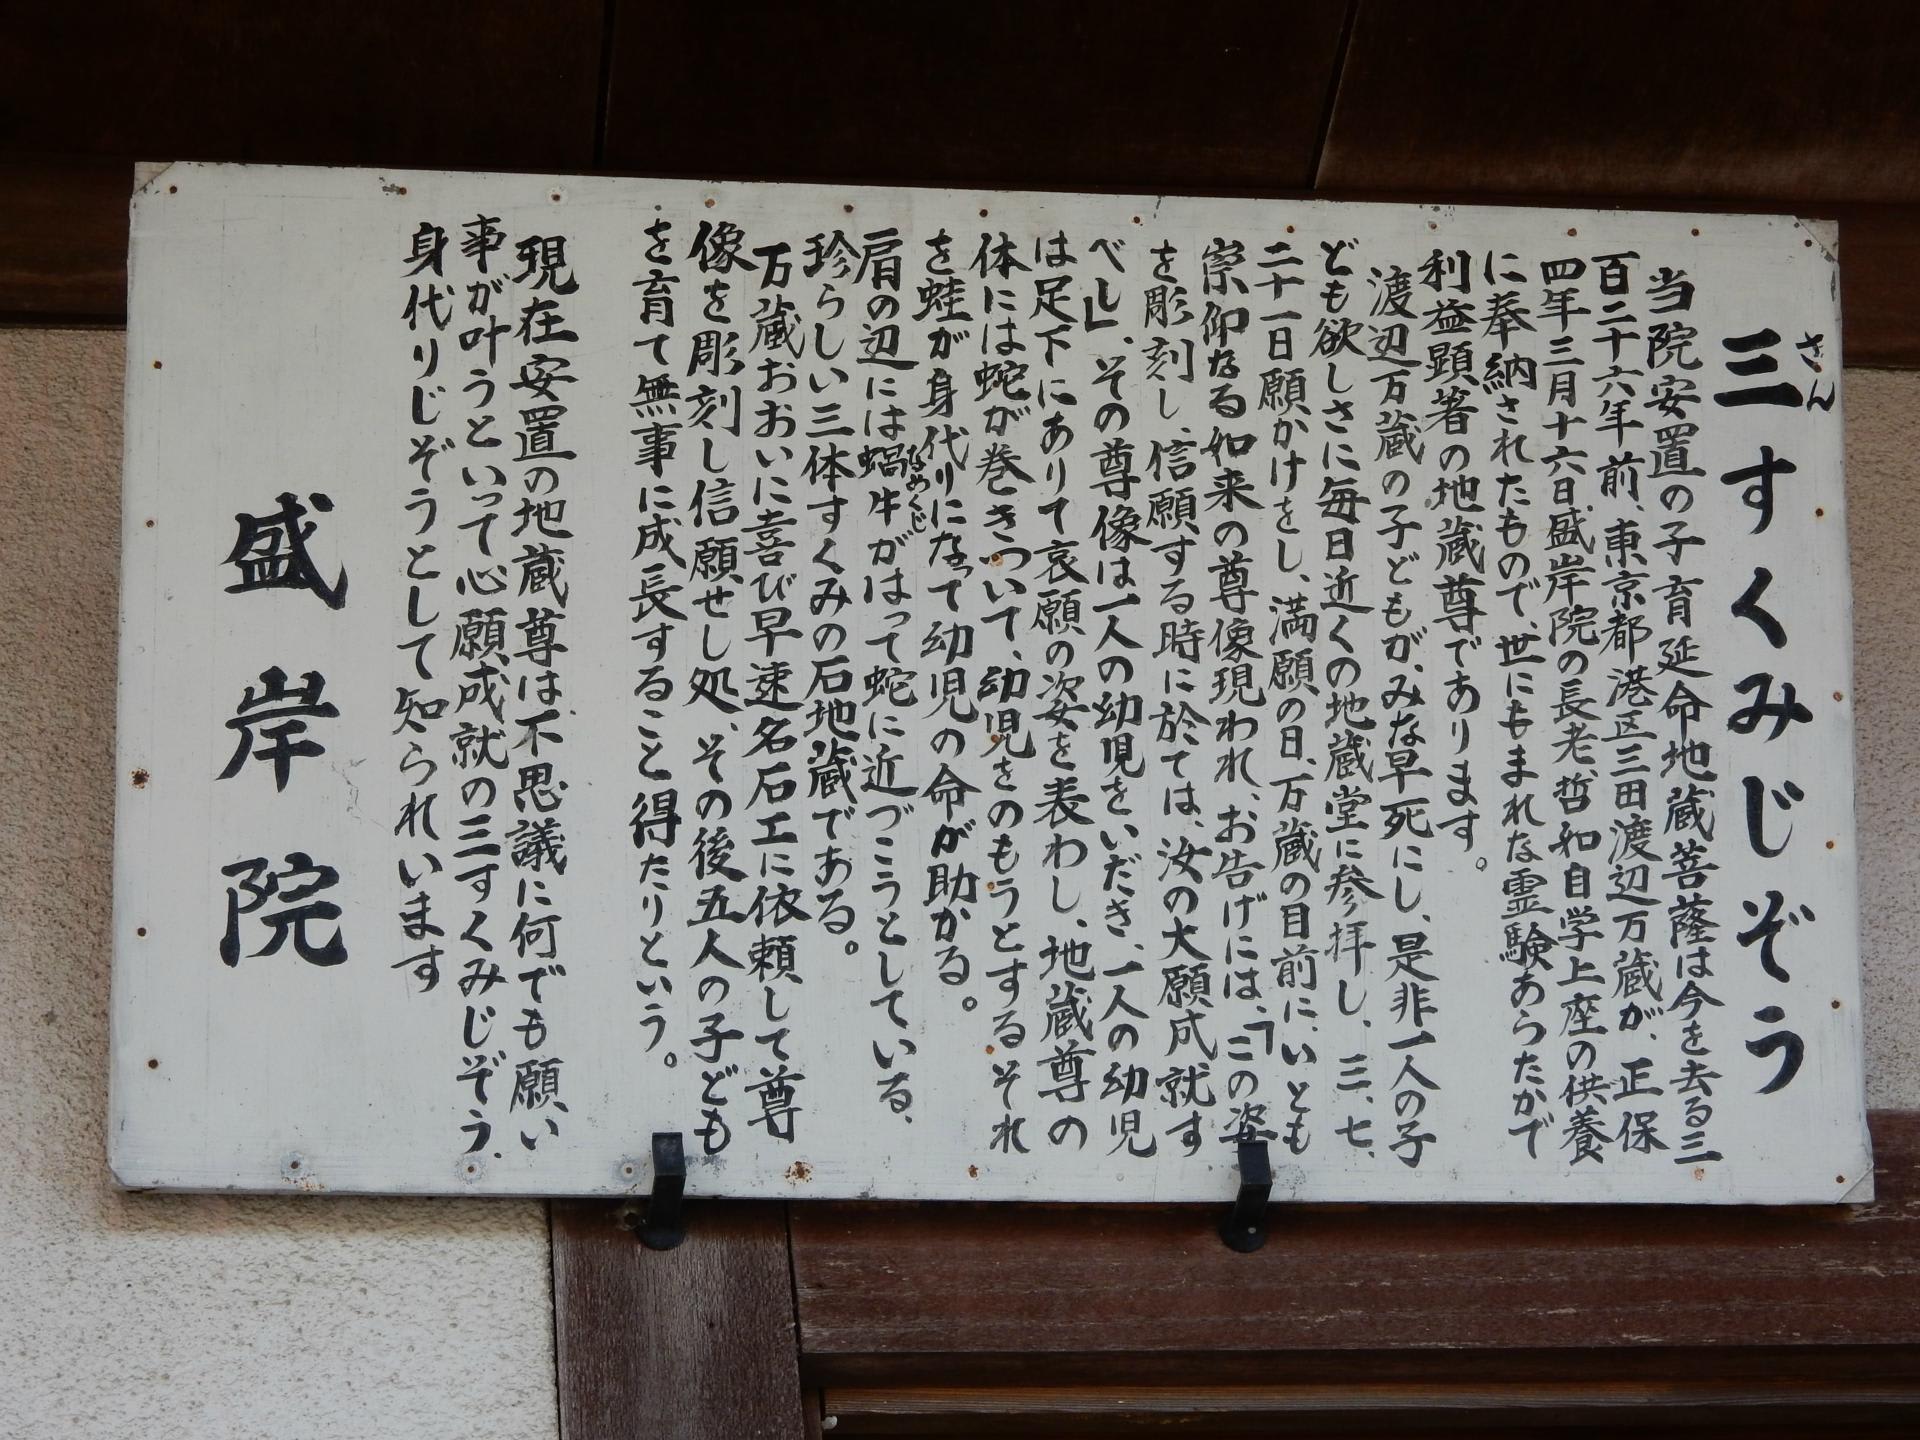 三すくみじぞう
さん
当院安置の子育延命地蔵菩薩は今を去る三
百二十六年前、東京都港区三田渡辺万蔵が、正保
四年三月十六日、盛岸院の長老哲和自学上座の供養
に奉納されたもので、世にもまれな霊験あらたかで
利益顕著の地蔵尊であります。
渡辺万蔵の子どもが、みな早死にし、是非一人の子
ども欲しさに毎日近くの地蔵堂に参拝し、三、七、
二十一日願かけをし、満願の日、万蔵の目前に、いとも
崇仰なる如来の尊像現われ、お告げには、「この姿
を彫刻し、信願する時に於ては、汝の大願成就す
べし」、その尊像は一人の幼児をいだき、一人の幼児
は足下にありて哀願の姿を表わし、地蔵尊の
体には蛇が巻きついて、幼児をのもうとするそれ
を蛙が身代りになって幼児の命が助かる。
肩の辺には蝸牛がはって蛇に近づこうとしている、
なめくじ
珍らしい三体すくみの石地蔵である。
万蔵おおいに喜び早速名石工に依頼して尊
像を彫刻し信願せし処、その後五人の子ども
を育て無事に成長すること得たりという。
現在安置の地蔵尊は不思議に何でも願い
事が叶うといって心願成就の三すくみじぞう、
身代りじぞうとして知られいます
盛岸院